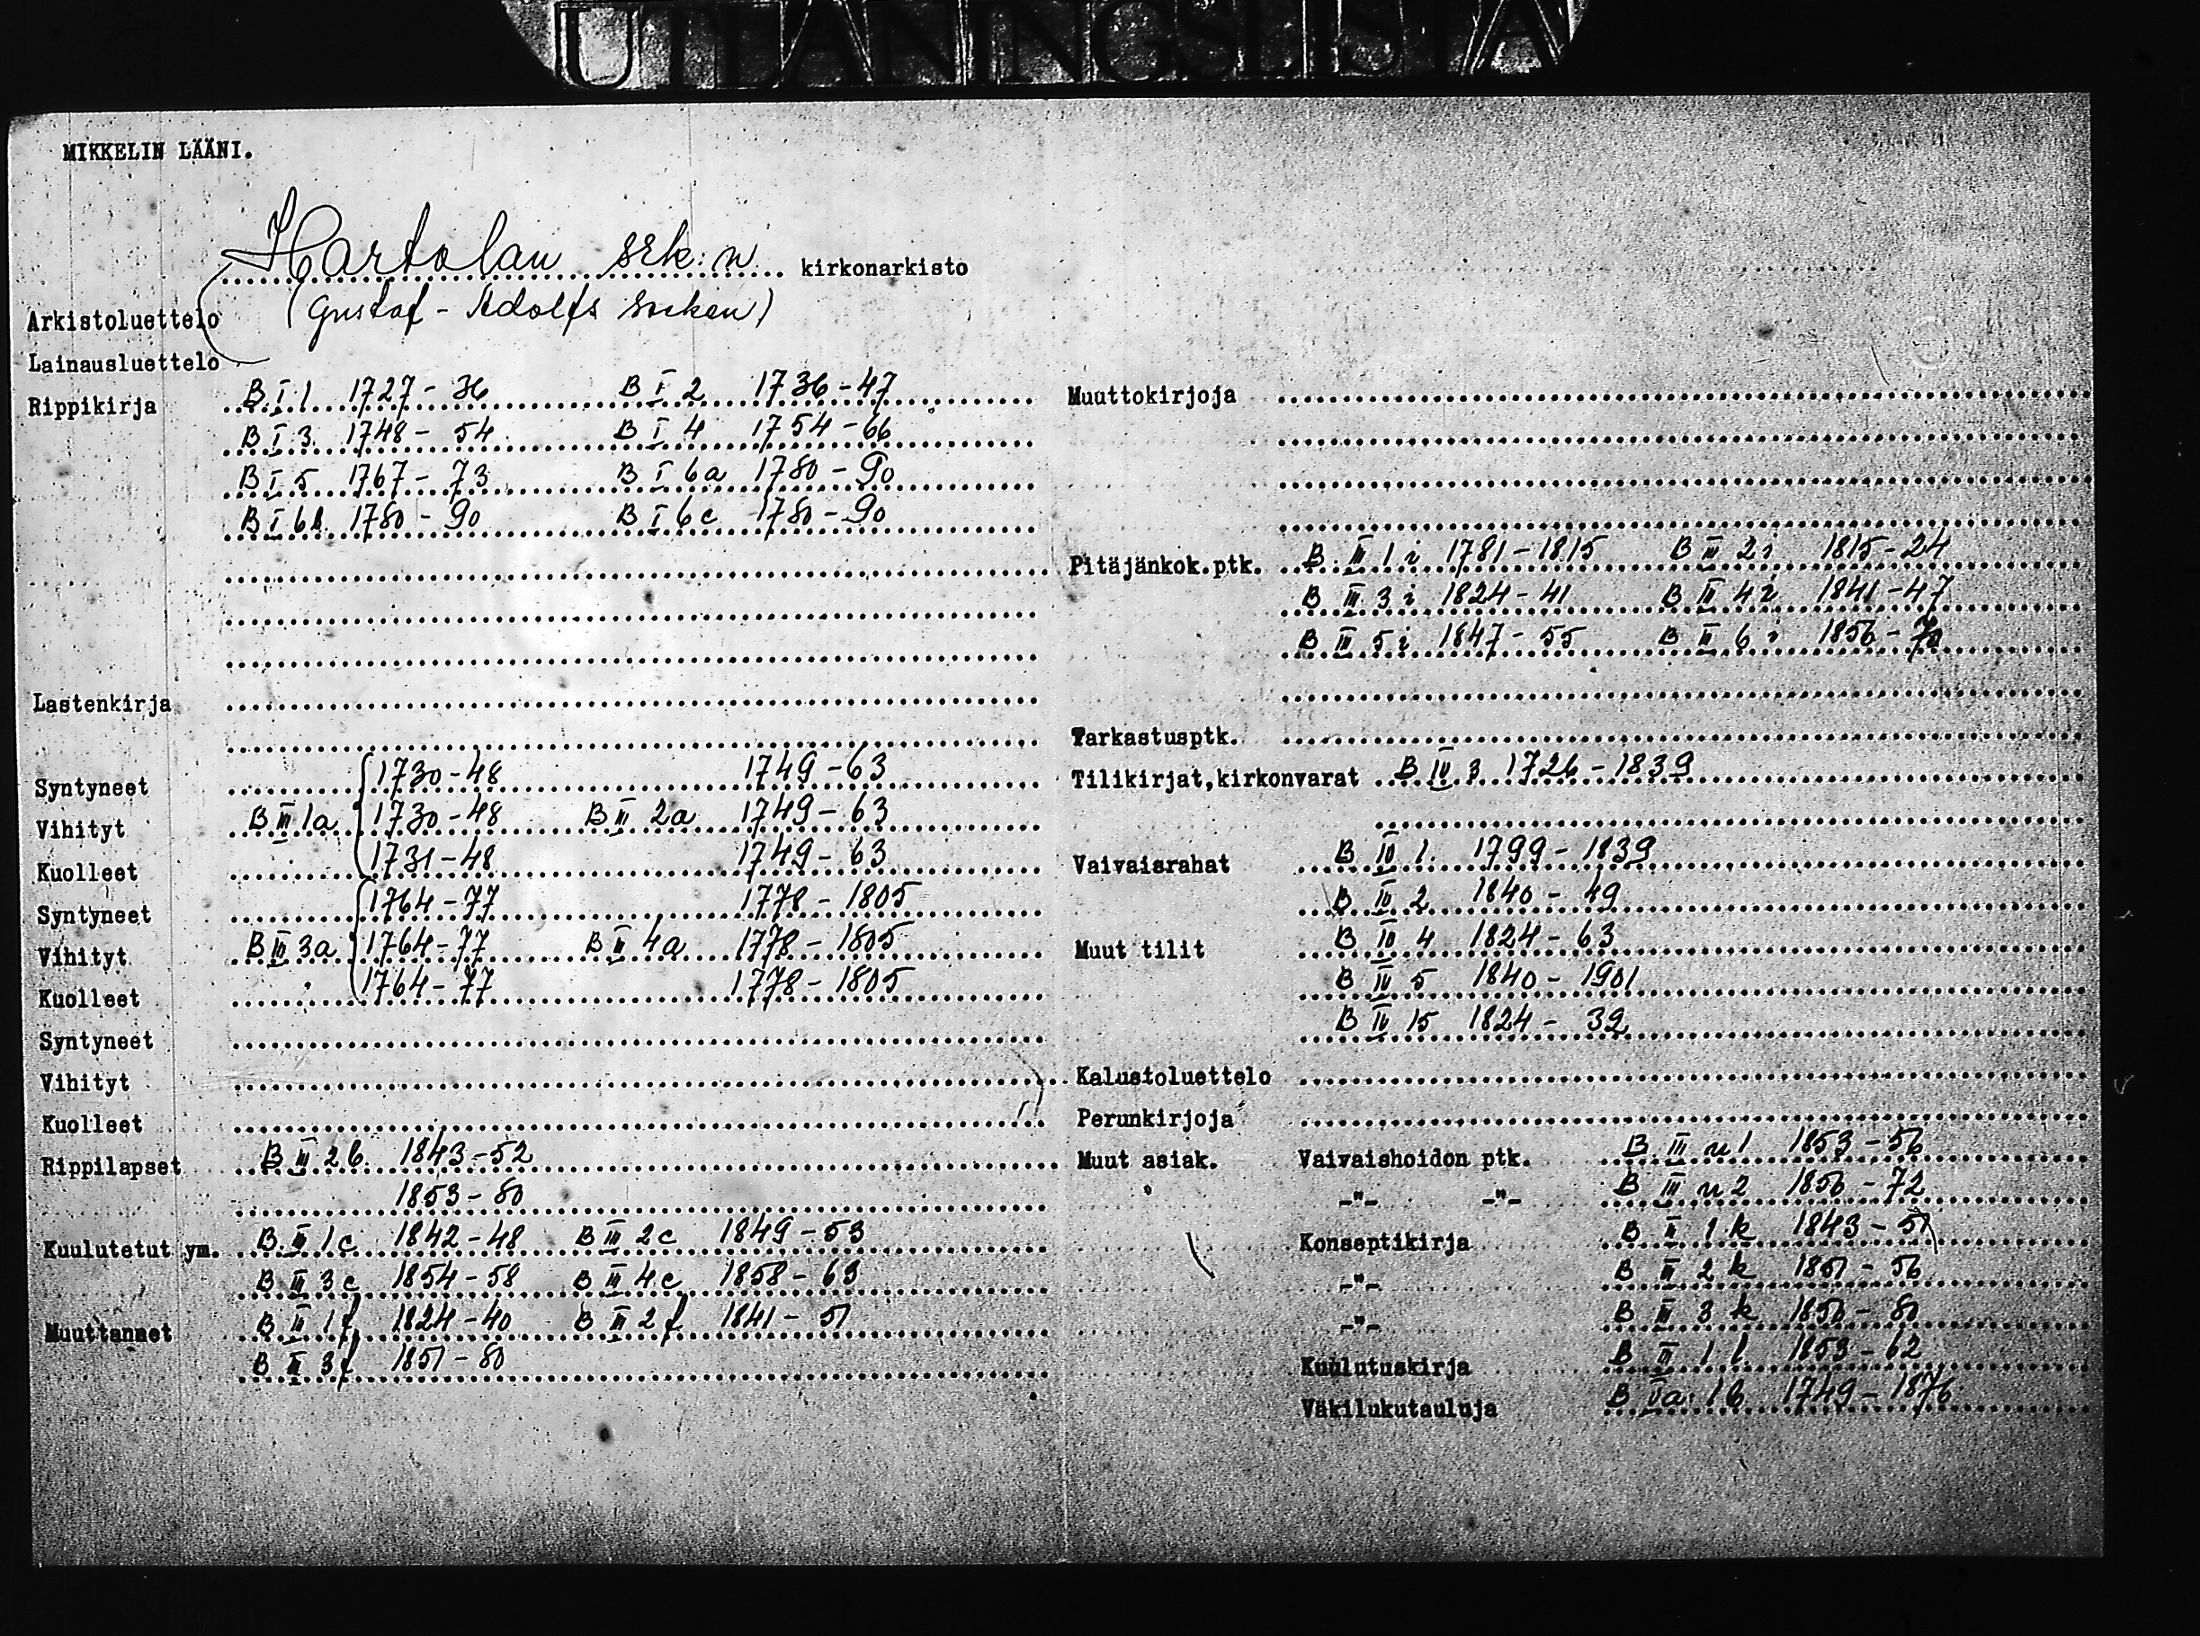 UTLÄNINGSLISTA
MIKKELIN LÄÄNI.
Hartolan srk:n kirkonarkisto
Arkistoluettelo (Gustaf-Adolfs socken)
Lainausluettelo
Rippikirja B I 1 1727-36 B I 2 1736-47
B I 3 1748-54 B I 4 1754-66
B I 5 1767-73 B I 6a 1780-90
B I 6b 1780-90 B I 6c 1780-90
Lastenkirja
Syntyneet 1730-48 1749-63
Vihityt B III 1a 1730-48 B III 2a 1749-63
Kuolleet 1731-48 1749-63
Syntyneet 1764-77 1778-1805
Vihityt B III 3a 1764-77 B III 4a 1778-1805
Kuolleet 1764-77 1778-1805
Syntyneet
Vihityt
Kuolleet
Rippilapset B III 2b 1843-52
1853-80
Kuulutetut ym. B III 1c 1842-48 B III 2c 1849-53
B III 3c 1854-58 B III 4c 1858-63
Muuttaneet B III 1f 1824-40 B III 2f 1841-51
B III 3f 1851-80
Muuttokirjoja
Pitäjänkok.ptk. B III 1i 1781-1815 B III 2i 1815-24
B III 3i 1824-41 B III 4i 1841-47
B III 5i 1847-55 B III 6i 1856-70
Tarkastusptk.
Tilikirjat,kirkonvarat B IV 3 1726-1839
Vaivaisrahat B IV 1 1799-1839
B IV 2 1840-49
Muut tilit B IV 4 1824-63
B IV 5 1840-1901
B IV 15 1824-32
Kalustoluettelo
Perunkirjoja
Muut asiak. Vaivaishoidon ptk. B III n1 1853-56
-"- -"- B III n2 1856-72
Konseptikirja B III 1k 1843-51
-"- B III 2k 1851-56
-"- B III 3k 1856-80
Kuulutuskirja B III 1l 1853-62
Väkilukutauluja B 1b 1749-1876